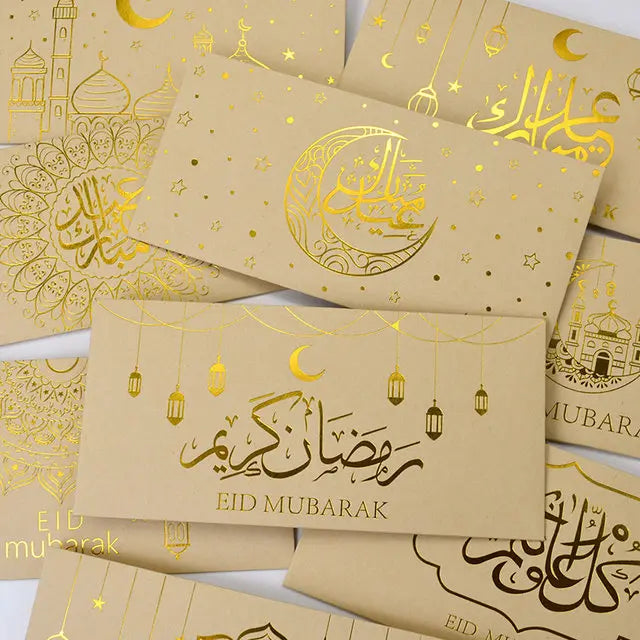 عيد مبارك
عيد مبارك
عيد مبارك
رمضان كريم
EID MUBARAK
MUBARA
EID
mubarak
كل عام وأنتم
EID MU